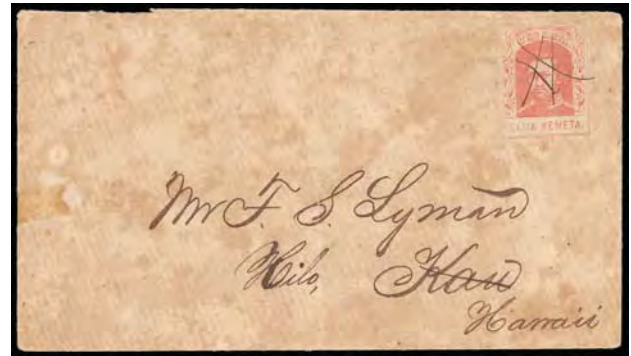 ELUA KENETA
Mr F. S. Lyman
Hilo, Kau
Hawaii